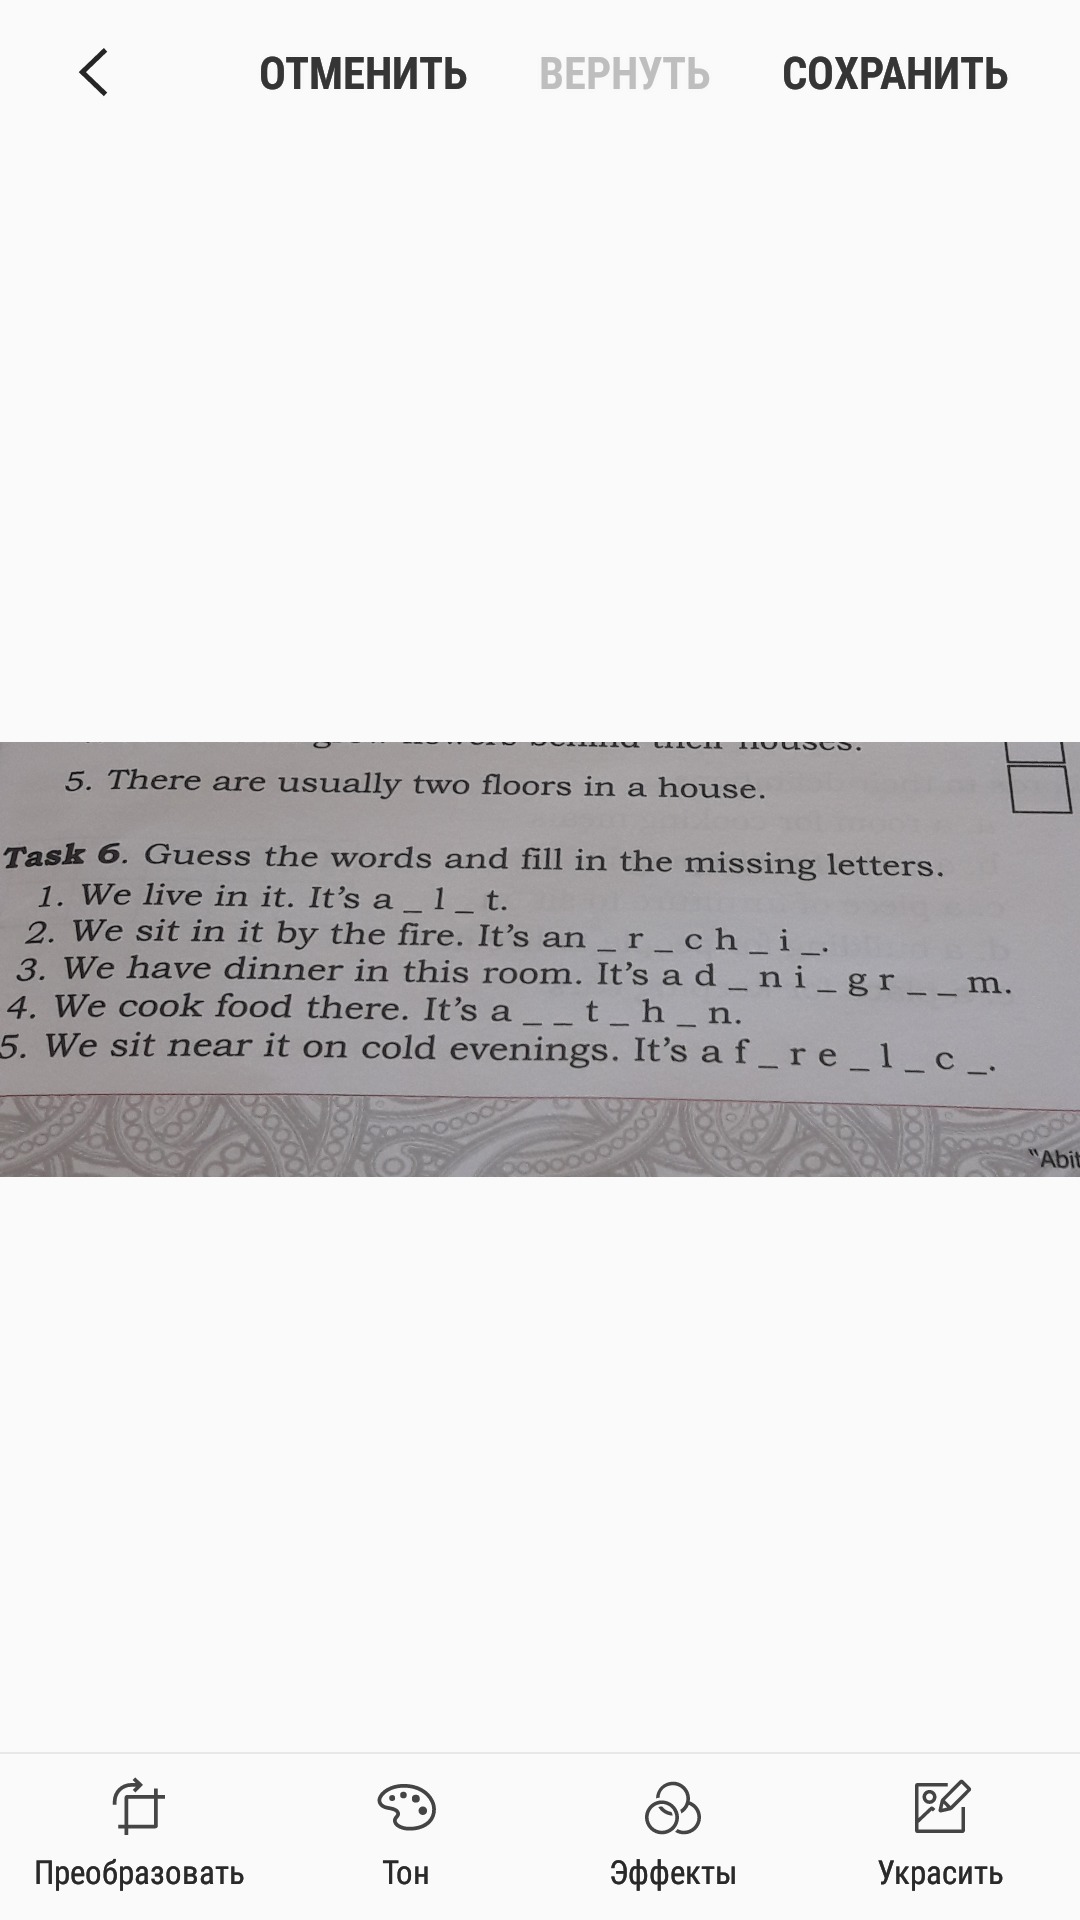 ОТМЕНИТЬ ВЕРНУТЬ СОХРАНИТЬ
behind their houses.
5. There are usually two floors in a house.
Task 6. Guess the words and fill in the missing letters.
1. We live in it. It's a _ l _ t.
2. We sit in it by the fire. It's an _ r _ c h _ i _.
3. We have dinner in this room. It's a d _ n i _ g r _ _ m.
4. We cook food there. It's a _ _ t _ h _ n.
5. We sit near it on cold evenings. It's a f _ r e _ l _ c _.
"Abit
Преобразовать Тон Эффекты Украсить